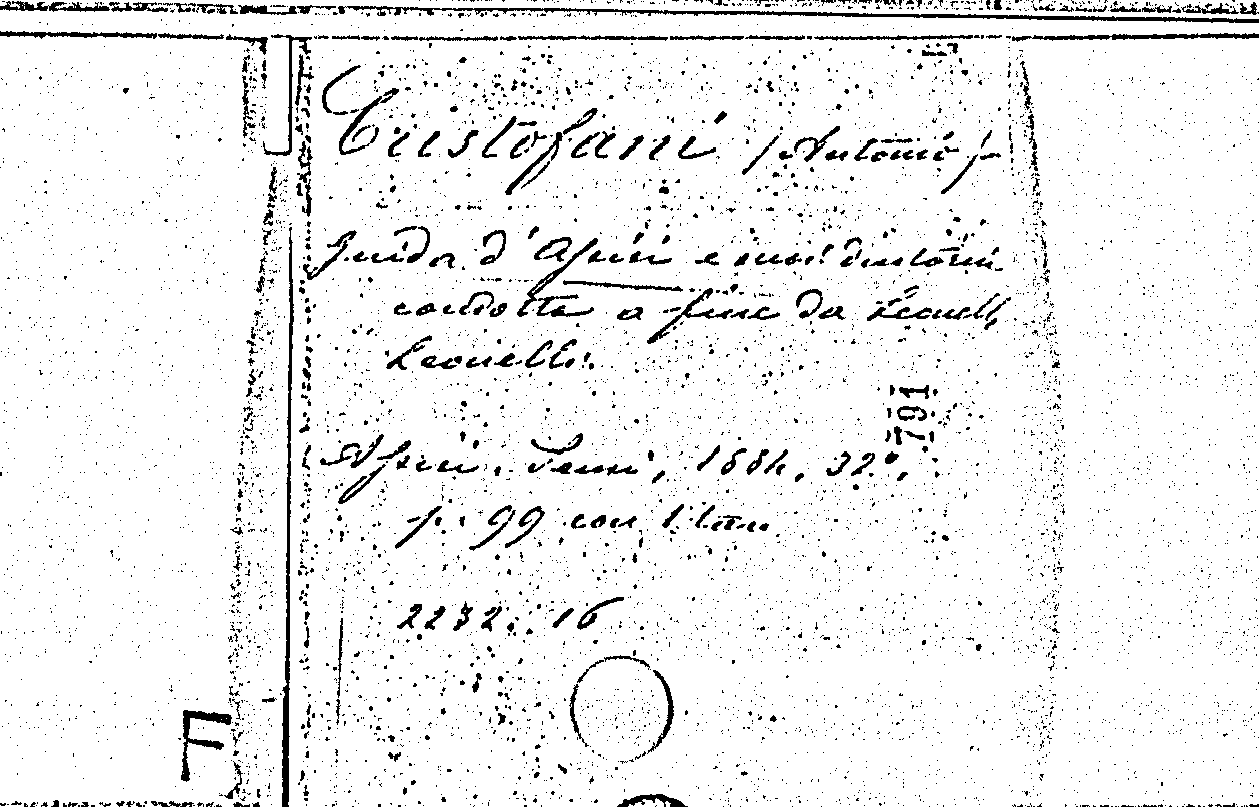 Cristofani /Antonio/
Guida d'Asisi e suoi dintorni
condotta a fine da Leonello
Leonelli.
791
Asisi. Sensi, 1884, 32°,
p. 99 con 1 tav.
2232. 16
F